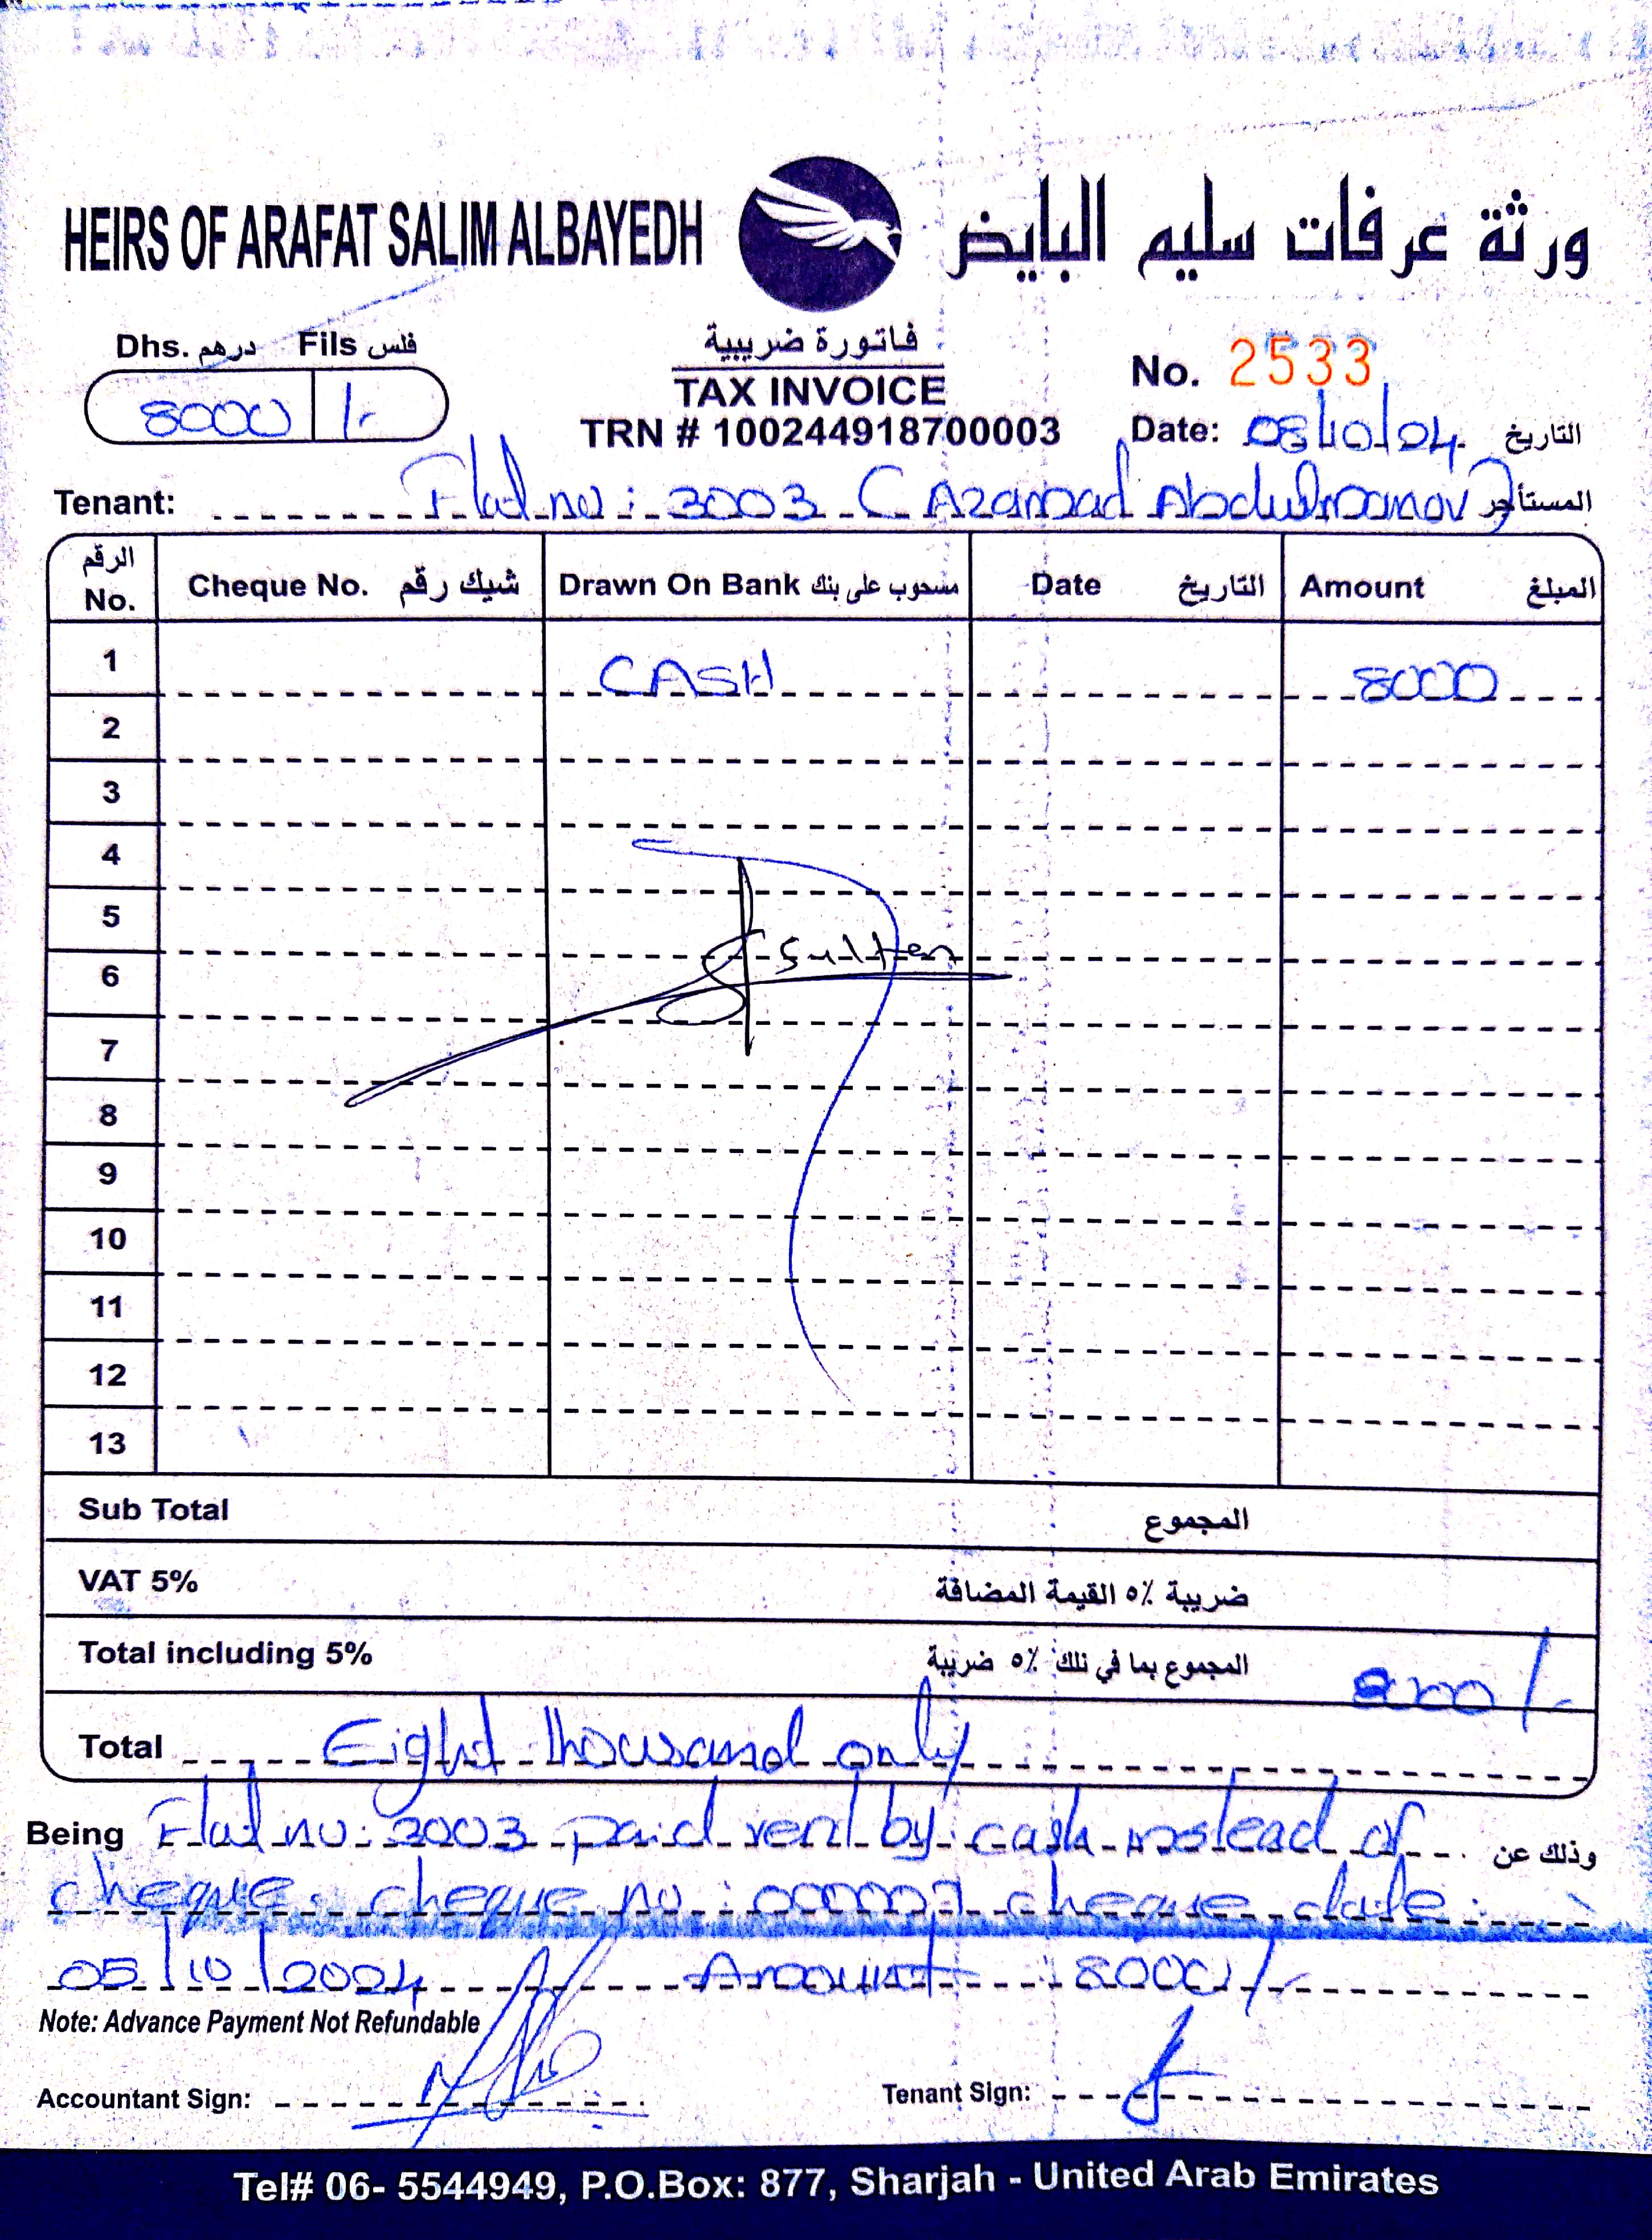 HEIRS OF ARAFAT SALIM ALBAYEDH ورثة عرفات سليم البايض
Dhs. درهم Fils فلس
8000 /-
فاتورة ضريبية
TAX INVOICE
TRN # 100244918700003
No. 2533
Date: 08/10/24 التاريخ
Tenant: Flat no: 3003 ( Azamad ) المستأجر
الرقم No. Cheque No. شيك رقم Drawn On Bank مسحوب على بنك Date التاريخ Amount المبلغ
1 CASH 8000
2
3
4
5
6 Sultan
7
8
9
10
11
12
13
Sub Total المجموع
VAT 5% ضريبة ٥٪ القيمة المضافة
Total including 5% المجموع بما في ذلك ٥٪ ضريبة 8000/-
Total Eight thousand only
Being Flat no: 3003 paid rent by cash instead of وذلك عن
cheque. cheque no: 000007 cheque date:
05/10/2024 Amount: 8000/-
Note: Advance Payment Not Refundable
Accountant Sign: Tenant Sign:
Tel# 06- 5544949, P.O.Box: 877, Sharjah - United Arab Emirates